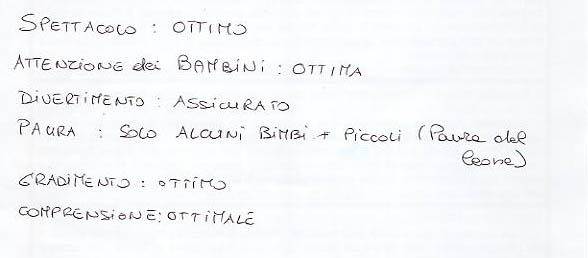 SPETTACOLO : OTTIMO
ATTENZIONE dei BAMBINI : OTTIMA
DIVERTIMENTO : ASSICURATO
PAURA : SOLO ALCUNI BIMBI + PICCOLI (Paura del
leone)
GRADIMENTO : OTTIMO
COMPRENSIONE: OTTIMALE